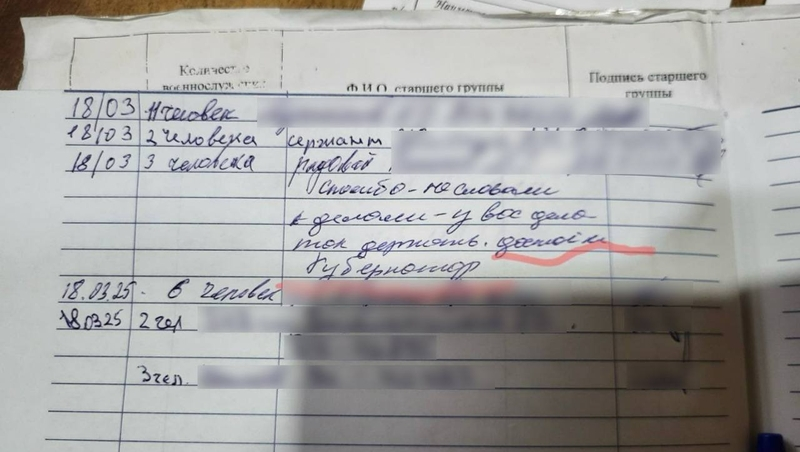 Количество
военнослуж
Ф.И.О. старшего группы
Подпись старшего
группы
18/03 11 человек
18/03 2 человека сержант
18/03 3 человека рядовой
Спосибо - не словами
а делами - у вас дело
ток держать.
Губернатор
18.03.25 - 6 человек
18.03.25 2 чел
3 чел.